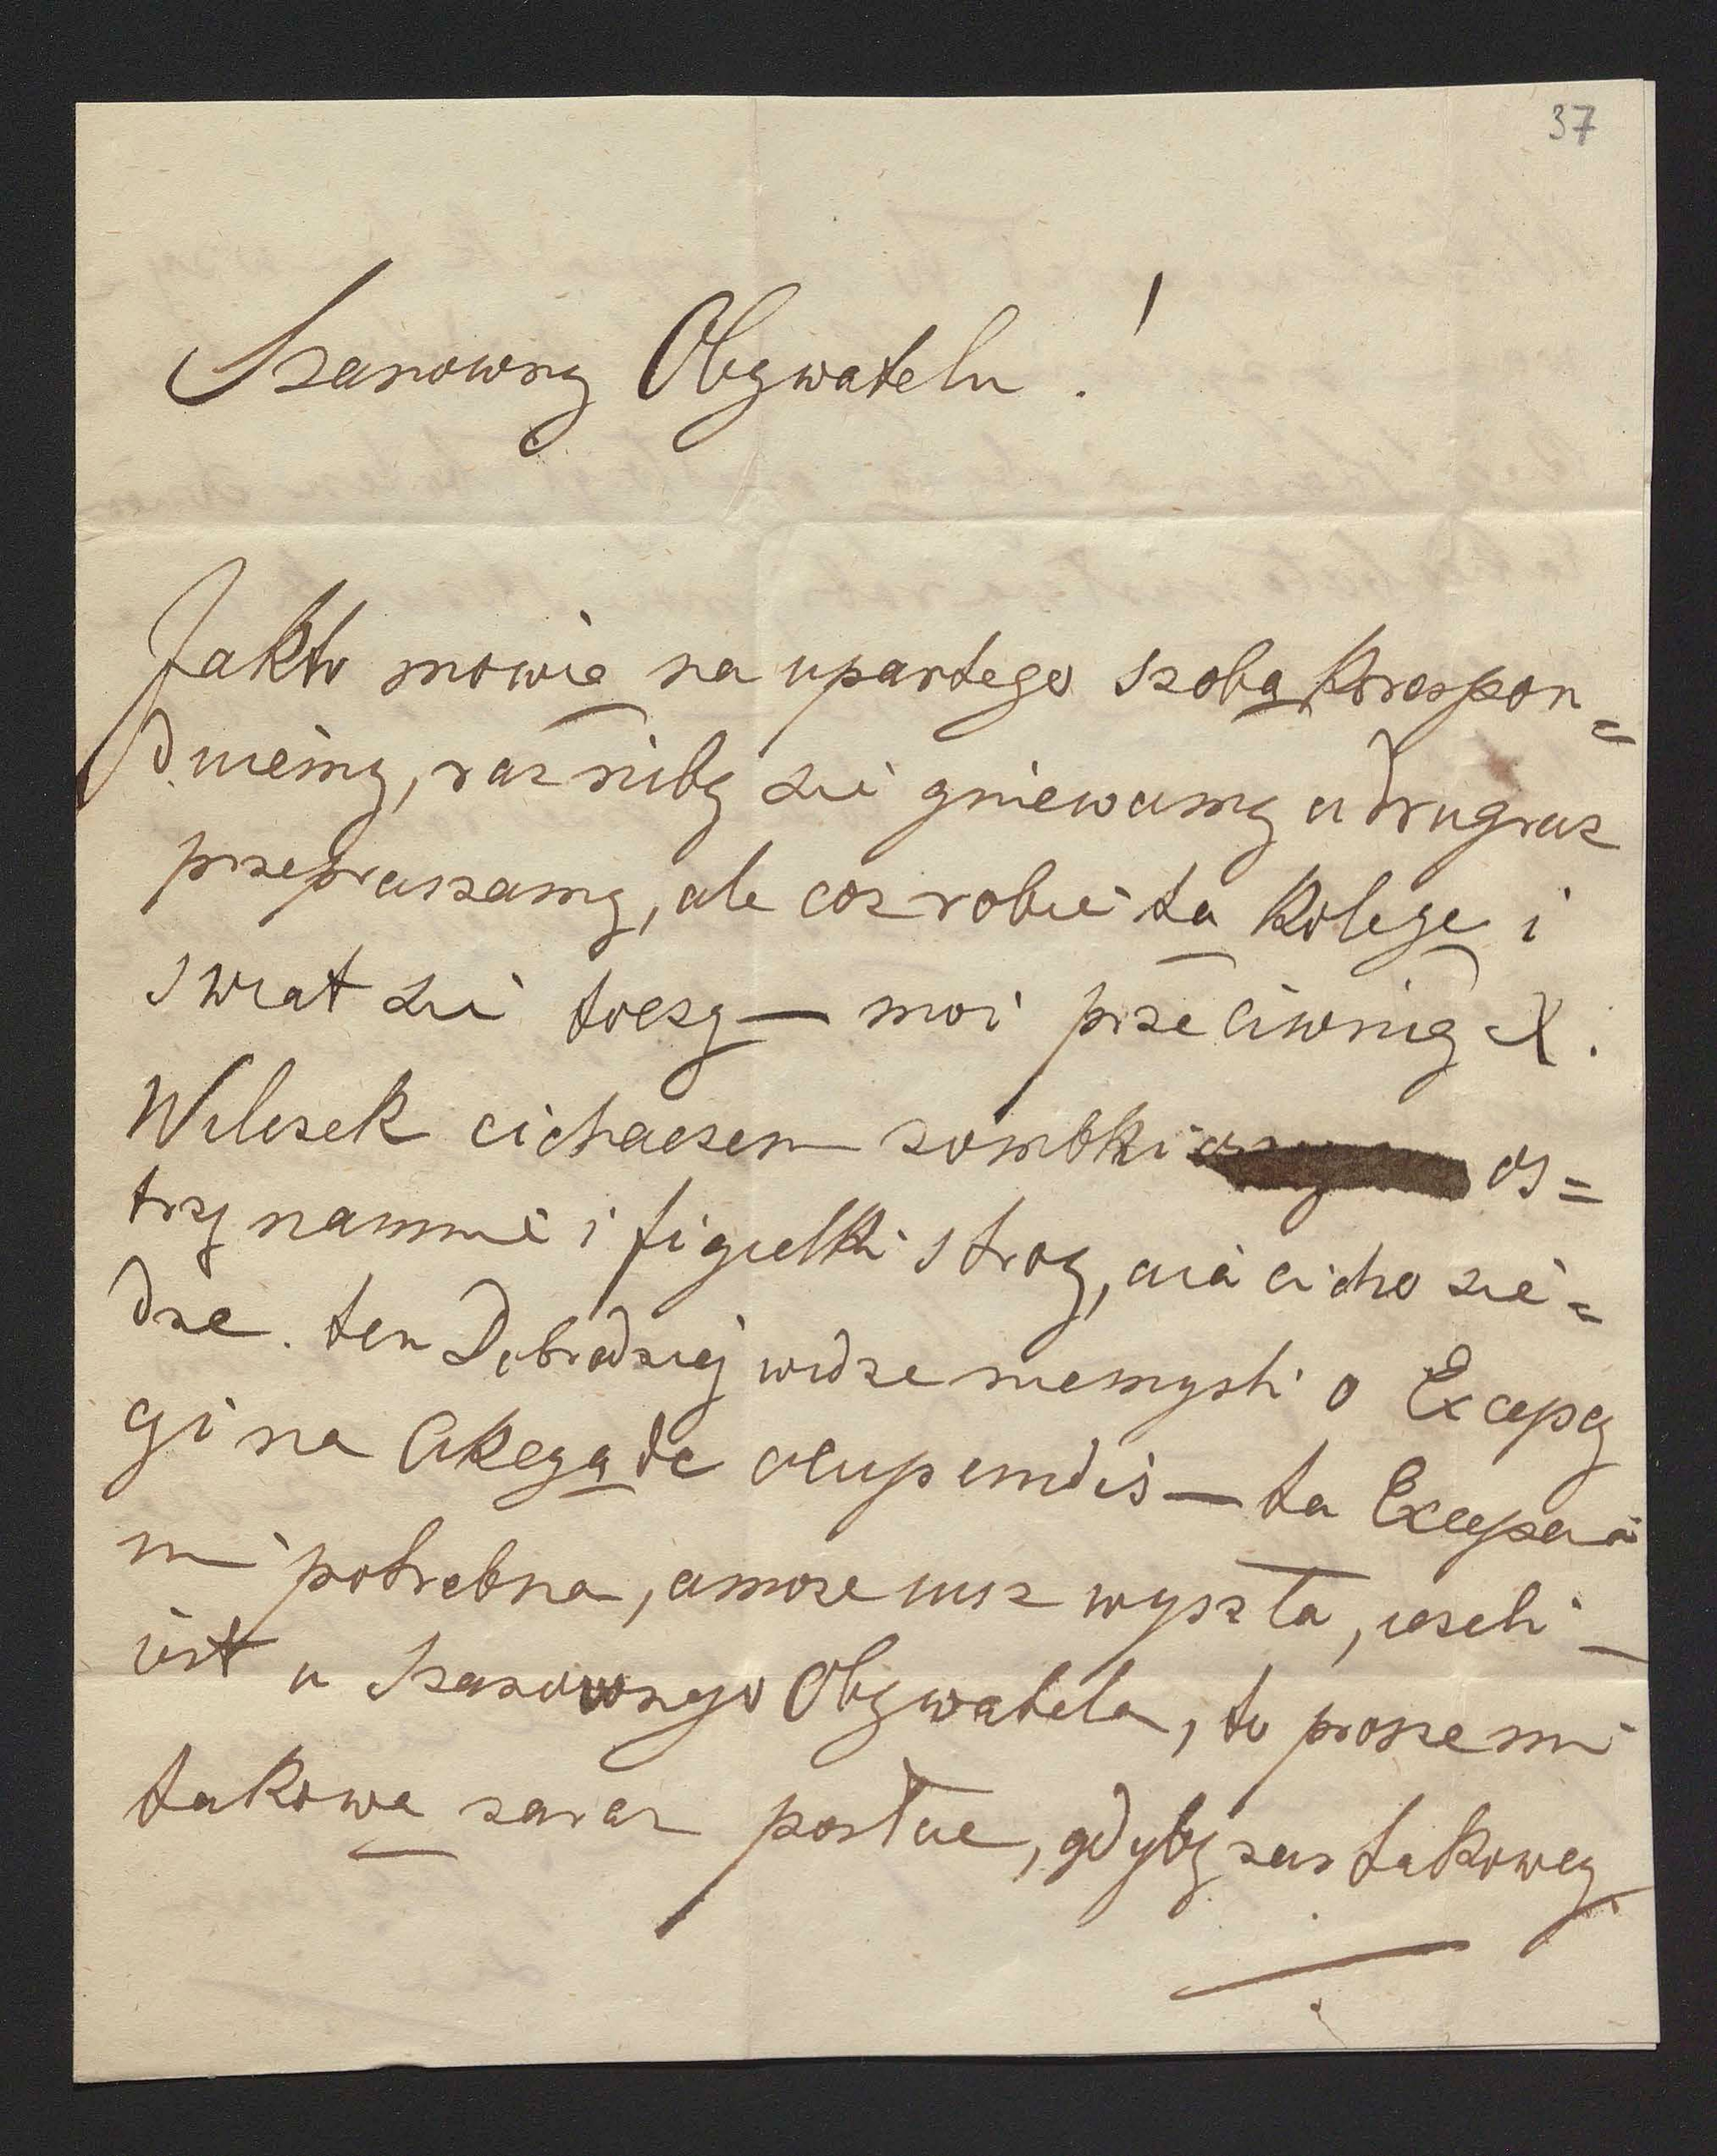 37
Szanowny Obywatelu!
Jakto mowią na upartego szobą korespon=
duiemy, raz niby sie gniewamy a drugraz
przepraszamy, ale coz robić ta kolege i
swiat sie toczy — moi przeciwnig X.
Wilczek cichaczem zombki os=
trzy namnie i figielki stroy, aia cicho sie=
dze. ten Dobrodziej widze niemysli o Excepcy
gi na Akcyą de olupendis — ta Excepcia
mi potrebna, amoze iusz wyszła, iezeli
iest u Szanownego Obywatela, to prosze mi
takową zaraz posłac, gdyby zas takowey